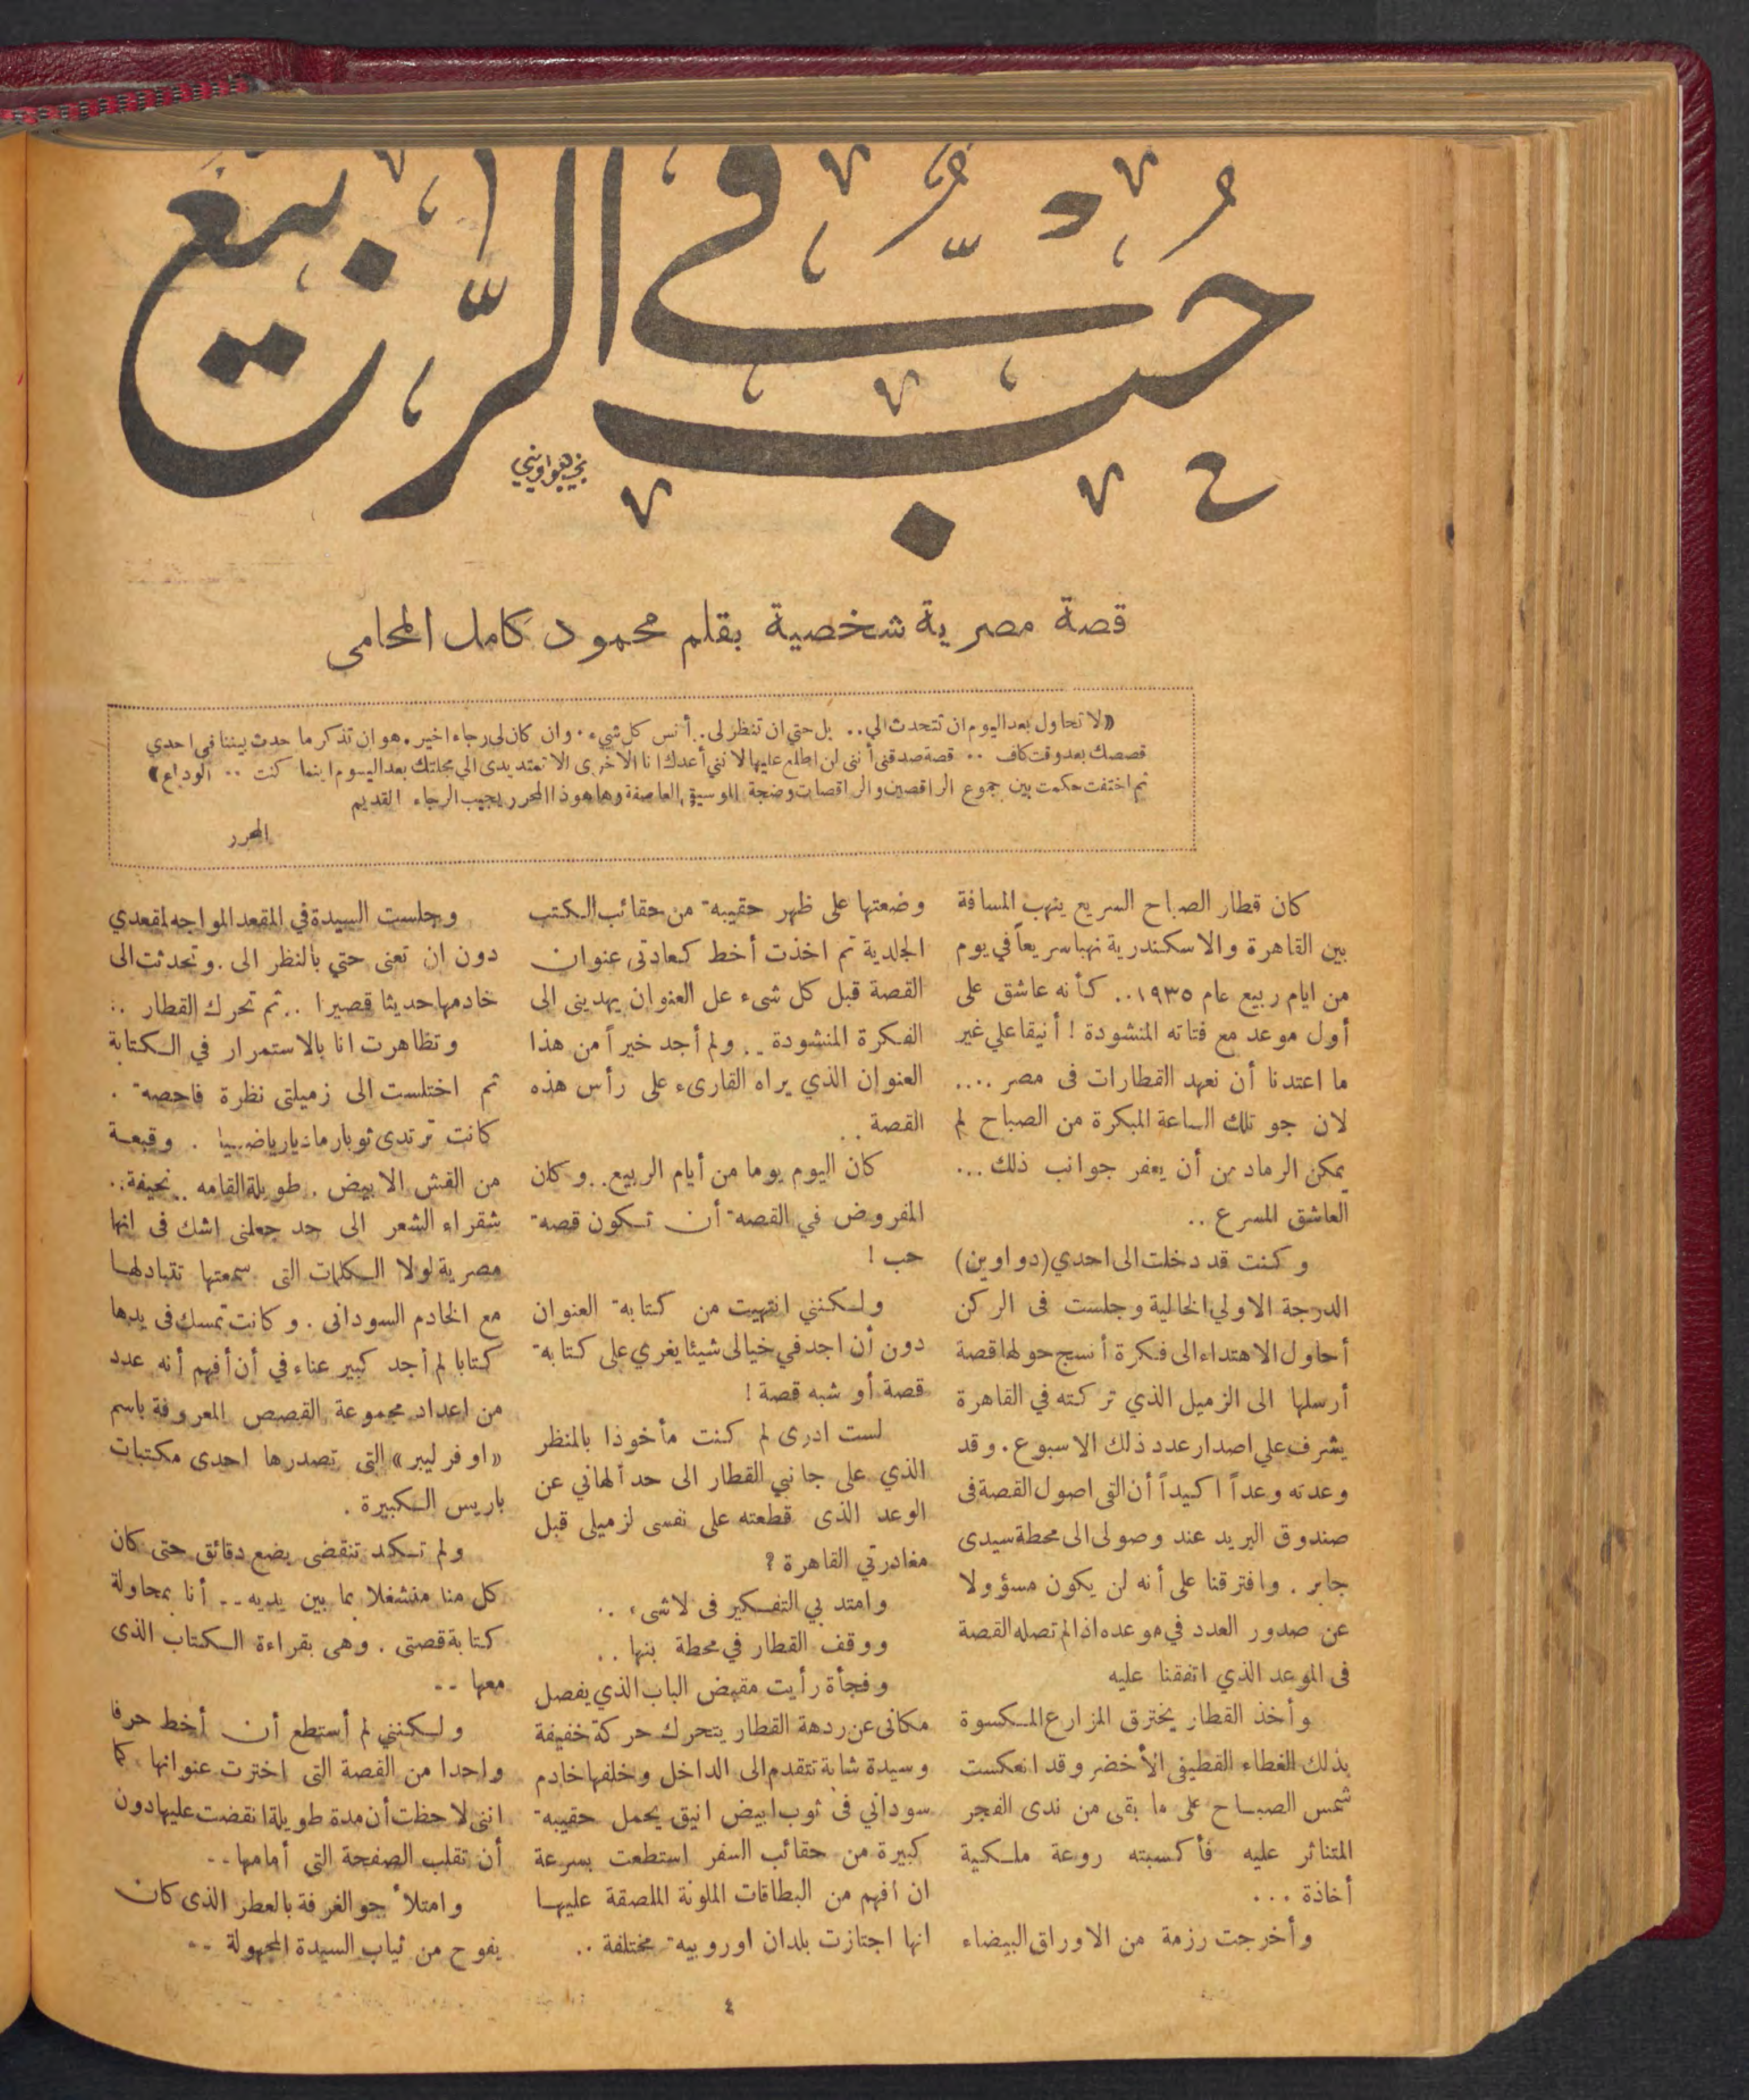 حُبٌّ في الرَّبيع
نجيب هواويني
قصة مصرية شخصية بقلم محمود كامل المحامى
«لا تحاول بعد اليوم ان تتحدث الي .. بل حتي ان تنظر لى . أنس كل شيء . وان كان لى رجاء اخير . هو ان تذكر ما حدث بيننا في احدي
قصصك بعد وقت كاف .. قصة صدقنى أننى لن اطلع عليها لانني أعدك انا الاخرى الا تمتد يدى الي مجلتك بعد اليوم اينما كنت .. الوداع»
ثم اختفت حكمت بين جموع الراقصين والراقصات وضجة الموسيقى العاصفة وها هو ذا المحرر يجيب الرجاء القديم
المحرر
كان قطار الصباح السريع ينهب المسافة
بين القاهرة والاسكندرية نهبا سريعاً في يوم
من ايام ربيع عام ١٩٣٥ .. كأنه عاشق على
أول موعد مع فتاته المنشودة ! أنيقا علي غير
ما اعتدنا أن نعهد القطارات فى مصر ....
لان جو تلك الساعة المبكرة من الصباح لم
يمكن الرماد من أن يعفر جوانب ذلك ...
العاشق المسرع ..
وكنت قد دخلت الى احدي (دواوين)
الدرجة الاولي الخالية وجلست فى الركن
أحاول الاهتداء الى فكرة أنسج حولها قصة
أرسلها الى الزميل الذي تركته في القاهرة
يشرف علي اصدار عدد ذلك الاسبوع . وقد
وعدته وعداً اكيداً أن التى اصول القصة فى
صندوق البريد عند وصولى الى محطة سيدى
جابر . وافترقنا على أنه لن يكون مسؤولا
عن صدور العدد في موعده اذا لم تصله القصة
فى الموعد الذي اتفقنا عليه
وأخذ القطار يخترق المزارع المكسوة
بذلك الغطاء القطيفى الأخضر وقد انعكست
شمس الصباح على ما بقى من ندى الفجر
المتناثر عليه فأكسبته روعة ملكية
أخاذة ...
وأخرجت رزمة من الاوراق البيضاء
وضعتها على ظهر حقيبة من حقائب الكتب
الجلدية ثم اخذت أخط كعادتى عنوان
القصة قبل كل شىء عل العنوان يهدينى الى
الفكرة المنشودة .. ولم أجد خيراً من هذا
العنوان الذي يراه القارىء على رأس هذه
القصة ..
كان اليوم يوما من أيام الربيع .. وكان
المفروض في القصة أن تكون قصة
حب !
ولكنني انتهيت من كتابة العنوان
دون أن اجد في خيالى شيئا يغري على كتابة
قصة أو شبه قصة !
لست ادرى لم كنت مأخوذا بالمنظر
الذي على جانبي القطار الى حد ألهاني عن
الوعد الذى قطعته على نفسى لزميلى قبل
مغادرتي القاهرة ؟
وامتد بي التفكير فى لا شىء ..
ووقف القطار في محطة بنها ..
وفجأة رأيت مقبض الباب الذي يفصل
مكانى عن ردهة القطار يتحرك حركة خفيفة
وسيدة شابة تتقدم الى الداخل وخلفها خادم
سوداني فى ثوب ابيض انيق يحمل حقيبة
كبيرة من حقائب السفر استطعت بسرعة
ان افهم من البطاقات الملونة الملصقة عليها
انها اجتازت بلدان اوروبية مختلفة ..
وجلست السيدة في المقعد المواجه لمقعدي
دون ان تعنى حتي بالنظر الى . وتحدثت الى
خادمها حديثا قصيرا .. ثم تحرك القطار ..
وتظاهرت انا بالاستمرار في الكتابة
ثم اختلست الى زميلتى نظرة فاحصة .
كانت ترتدى ثوبا رماديا رياضيا . وقبعة
من القش الابيض . طويلة القامه .. نحيفة ..
شقراء الشعر الى حد جعلنى اشك فى انها
مصرية لولا الكلمات التى سمعتها تتبادلها
مع الخادم السودانى . وكانت تمسك فى يدها
كتابا لم أجد كبير عناء في أن أفهم أنه عدد
من اعداد مجموعة القصص المعروفة باسم
«اوفر ليبر» التى تصدرها احدى مكتبات
باريس الكبيرة .
ولم تكد تنقضى بضع دقائق حتى كان
كل منا منشغلا بما بين يديه .. أنا بمحاولة
كتابة قصتى . وهى بقراءة الكتاب الذى
معها ..
ولكنني لم أستطع أن أخط حرفا
واحدا من القصة التى اخترت عنوانها كما
اننى لاحظت أن مدة طويلة انقضت عليها دون
أن تقلب الصفحة التي أمامها ..
وامتلأ جو الغرفة بالعطر الذى كان
يفوح من ثياب السيدة المجهولة ..
٤